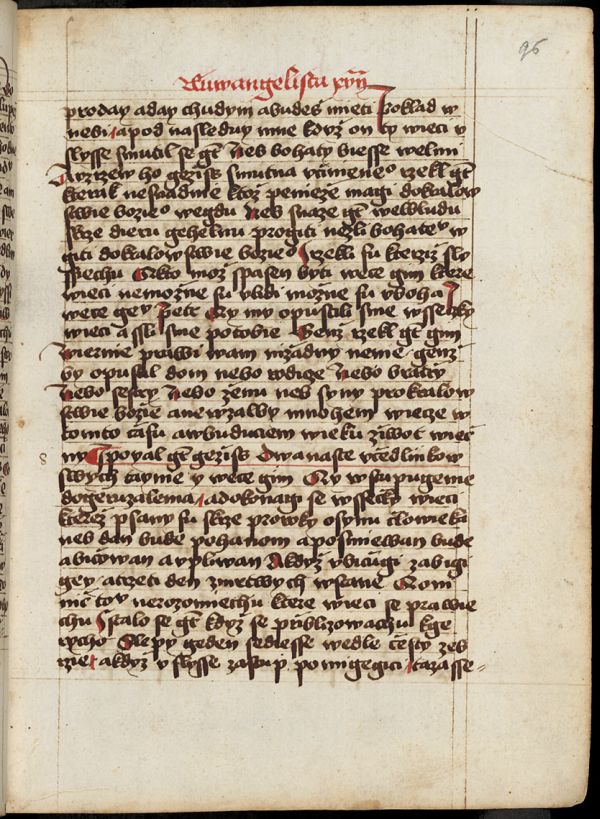 96
Wuwangelista xviij
proday aday chudym abudeš mieti poklad w
nebi apod nasleduy mne když on ty wieci v
slysse smutil se gt Neb bohaty biesse welmi
Auzrzew ho geziss smutna včiněneo rzekl gt
kterak nesnadnie ktož penieze magi dokralow
stwie bozieo wegdu Neb snaze gt welbludu
skrze dieru gehelnu progiti nežli bohatev w
giti dokralowstwie bozieo I rzekli su kterziž sly
ssechu Ckto mož spasen byti wece gim ktere
wieci nemožne su v lidi možne su v boha I
wece gev petr Ay my opustili sme wssecky
wieci a ssli sme potobie Genž rzekl gt gim
wiernie prawi wam nižadny nenie genž
by opustil dom nebo rodicze nebo bratry
Nebo sestry Nebo ženu neb syny prokralow
stwie bozie anewzalby mnohem wiecze w
tomto času awbuduciem wieku žiwot wieč
ny Ipoyal gt geziss Dwanaste včedlnikow
swych taynie y wece gim Ay wstupugeme
dogeruzalema adokonagi se wssecky wieci
kterež psany su skrze proroky osynu člowieka
neb dan bude pohanom aposmiewan bude
abičowan aupliwan Akdyž vbičugi zabigi
gey atrzeti den zmrtwych wstane Aoni
nic tov nerozomiechu ktere wieci se prawie
chu I stalo se gt když se približowachu kge
rycho Slepy geden sediesse wedle cesty žeb
rzie akdyž vslysse zastup pomigegici tazasse